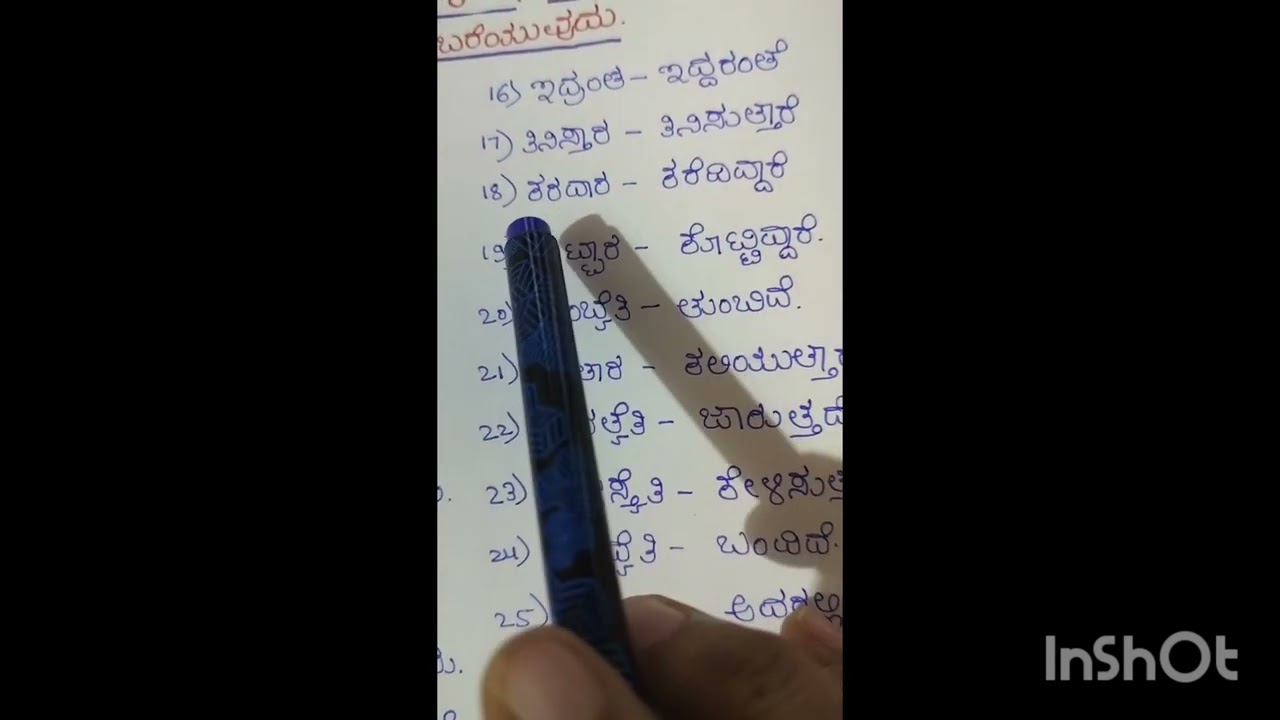 ಬರೆಯುವುದು.
16) ಇದ್ರಂತ – ಇದ್ದರಂತೆ
17) ತಿನಿಸ್ತಾರ – ತಿನಿಸುತ್ತಾರೆ
18) ಕರದಾರ – ಕರೆದಿದ್ದಾರೆ
19) ಟ್ಟಾರ – ಕೊಟ್ಟಿದ್ದಾರೆ.
20) ಂಬ್ಯೆತಿ – ತುಂಬಿದೆ.
21) ತಾರ – ಕಲಿಯುತ್ತಾ
22) ತ್ತೈತಿ – ಜಾರುತ್ತದೆ
23) ಸ್ತೈತಿ – ಕೇಳಿಸುತ್ತ
24) ದೈತಿ – ಬಂದಿದೆ.
25) ಅದರಲ್ಲಿ
InShOt